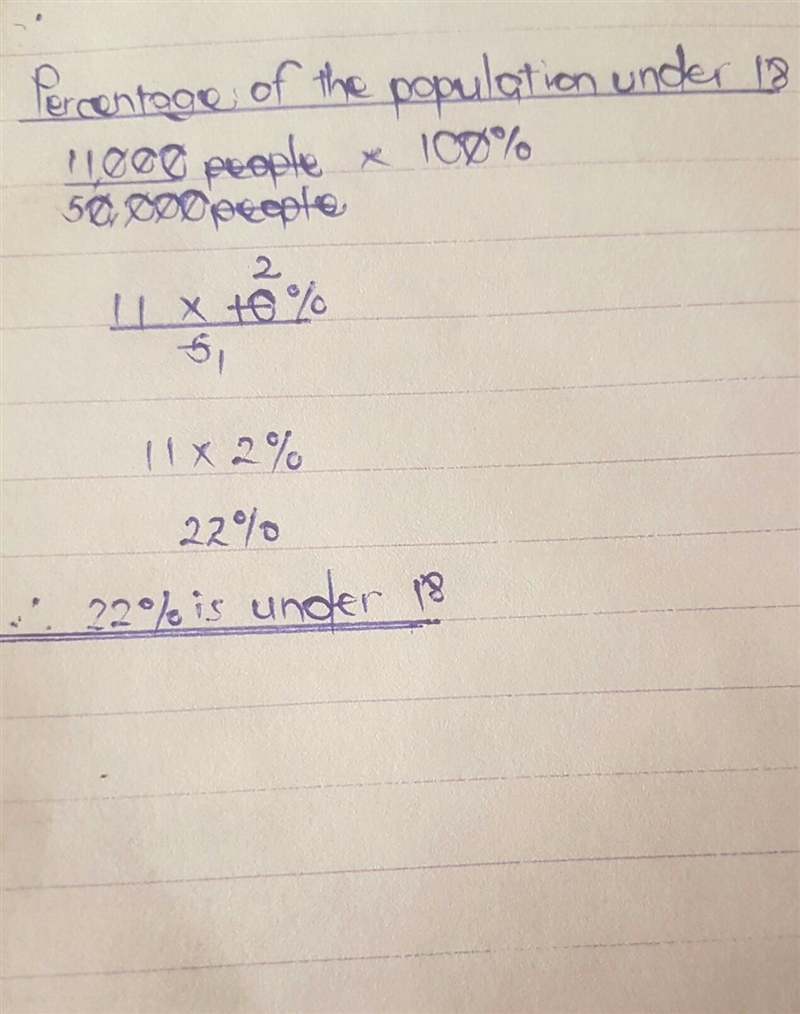 Percentage of the population under 18
11,000 people × 100%
50,000 people
2
11 × 10%
5 1
11 × 2%
22%
∴ 22% is under 18